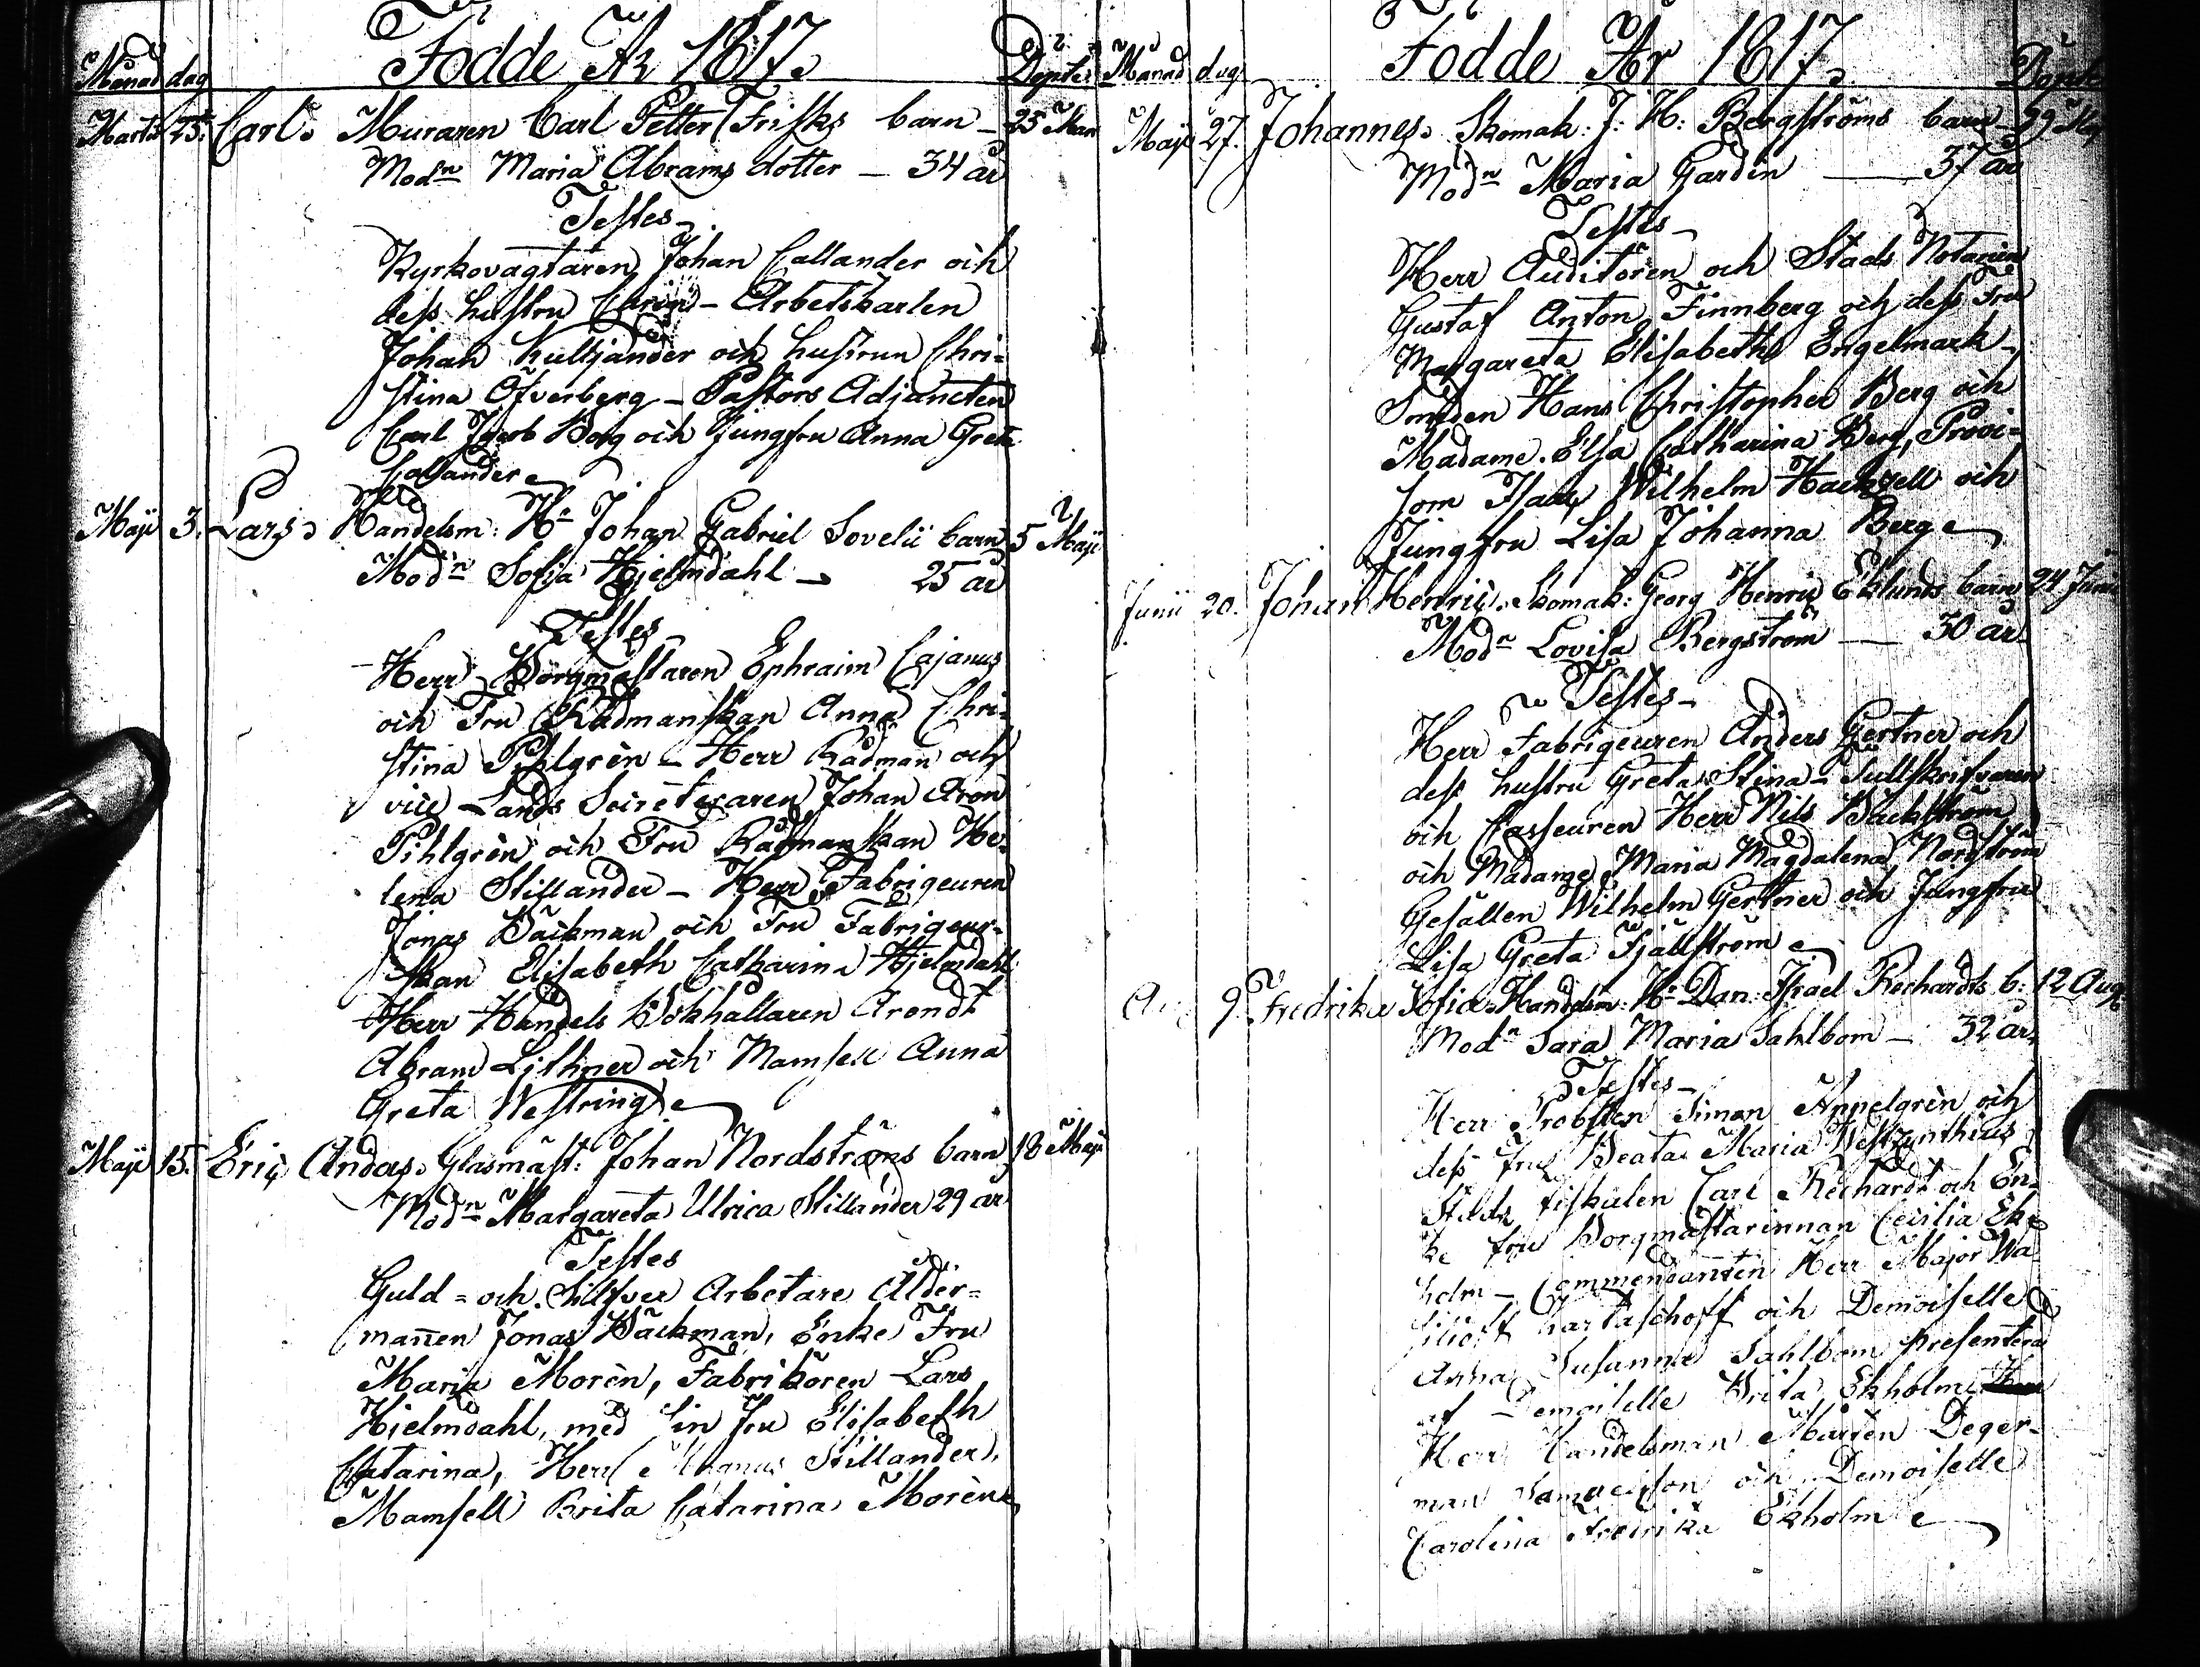 Månad dag Födde År 1817. Döpte
Martii 25. Carl. Muraren Carl Petter Frisks barn – 25 Mar
Modn Maria Abrams dotter – 34 år
Testes –
Kyrkovagtaren Johan Callander och
dess hustru – Arbetskarlen
Johan Kulljander och hustrun Chri-
stina Öfverberg – Pastors Adjuncten
Carl Jacob Borg och Jungfru Anna Greta
Callander
Maji 3. Lars. Handelsm: Hr Johan Gabriel Sovelii barn 5 Maji
Modn Sofia Hjelmdahl – 25 år
Testes
Herr Borgmästaren Ephraim Cajanus
och Fru Rådmanskan Anna Chri-
stina Pihlgrèn – Herr Rådman och
vice Lands Secreteraren Johan Aron
Pihlgrèn och Fru Rådmanskan He-
lena Stillander – Herr Fabrigeuren
Jonas Bäckman och Fru Fabrigeur-
skan Elisabeth Catharina Hjelmdahl
Herr Handels Bokhållaren Arendt
Abram Lithner och Mamsell Anna
Greta Westring
Maji 15. Eric Anders. Glasmäst: Johan Nordströms barn 18 Maji
Modn Margareta Ulrica Stillander 29 år
Testes
Guld = och Silfver Arbetare Ålder=
mannen Jonas Bäckman, Enke Fru
Maria Morèn, Fabrikören Lars
Hjelmdahl, med sin fru Elisabeth
Catarina, Herr Magnus Stillander,
Mamsell Brita Catarina Morèn
Månad dag Födde År 1817. Döpte
Maji 27. Johannes. Skomak: J: H: Bergströms barn – 29 Maj
Modn Maria Gardin – 37 år
Testes –
Herr Auditören och Stads Notarien
Gustaf Anton Finnberg och dess Fru
Margareta Elisabeth Engelmark –
Smeden Hans Christopher Berg och
Madame Elsa Catharina Berg, Provi-
sorn Isaac Wilhelm Hackzell och
Jungfru Lisa Johanna Berg
Junii 20. Johan Henric. Skomak: Georg Henric Eklunds barn 24 Junii
Modn Lovisa Bergström – 30 år
Testes –
Herr Fabrigeuren Anders Gertner och
dess hustru Greta Stina – Tullskrifvaren
och Casseuren Herr Nils Bäckström
och Madame Maria Magdalena Nordström
Gesällen Wilhelm Gertner och Jungfru
Lisa Greta Fjällström
Aug 9. Fredrika Sofia. Handelsm: Hr Dan: Israel Rechardts b: 12 Aug
Modn Sara Maria Sahlbom – 32 år
Testes –
Herr Probsten Simon Appelgrèn och
dess fru Beata Maria Westzynthius
Stads fiskalen Carl Rechardt och En-
ke fru Borgmästarinnan Cecilia Ek-
holm – Commendanten Herr Major Wa
silioff Kartaschoff och Demoiselle
Anna Susanna Sahlbom presentera
af Demoiselle Brita Ekholm
Herr Handelsman Mårten Deger-
man Samuelson och Demoiselle
Carolina Fredrika Ekholm